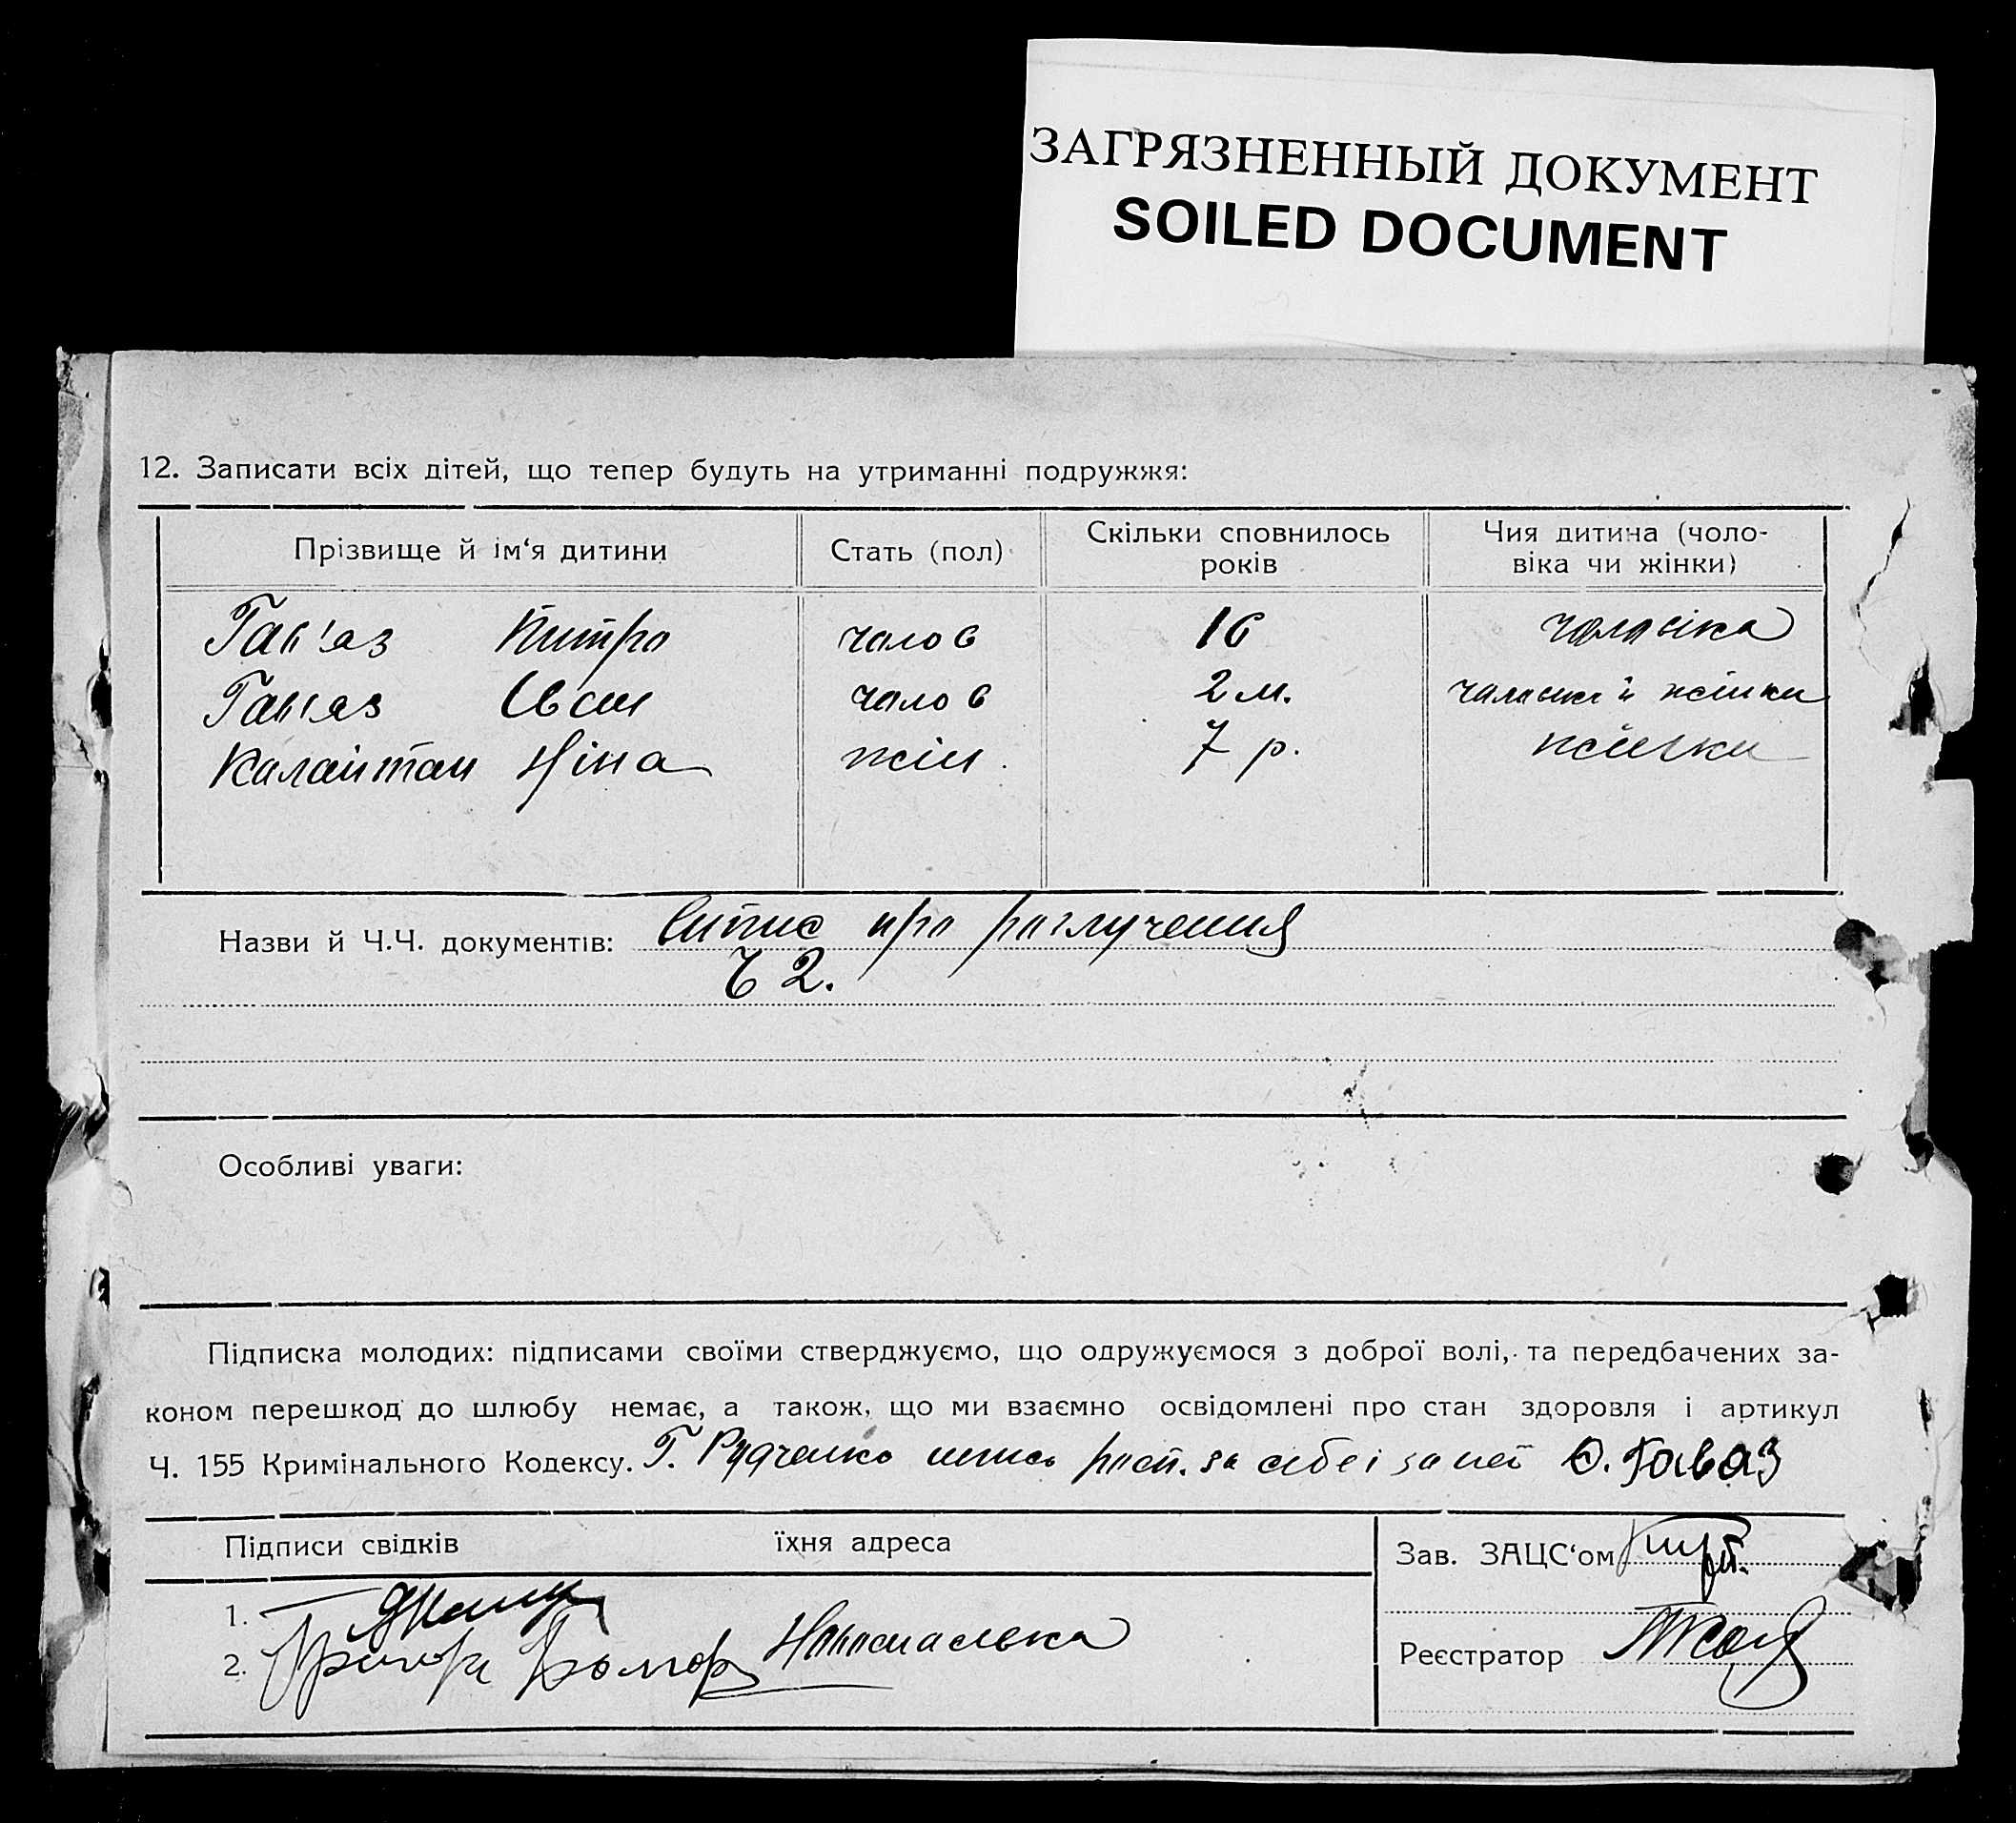 ЗАГРЯЗНЕННЫЙ ДОКУМЕНТ
SOILED DOCUMENT
12. Записати всіх дітей, що тепер будуть на утриманні подружжя:
Прізвище й ім‘я дитини Стать (пол) Скільки сповнилось років Чия дитина (чоло- віка чи жінки)
Гав'яз чолов 16 чоловіка
Гав'яз чолов 2 м. й жінки
Калайтан Ніна жін. 7 р. жінки
Назви й Ч.Ч. документів: Витис про розлучення
Ч 2.
Особливі уваги:
Підписка молодих: підписами своїми стверджуємо, що одружуємося з доброї волі, та передбачених за-
коном перешкод до шлюбу немає, а також, що ми взаємно освідомлені про стан здоровля і артикул
Ч. 155 Кримінального Кодексу. Г. Рудченко за себе і за неї Гаваз
Підписи свідків їхня адреса Зав. ЗАЦС‘ом
1.
2. Реєстратор